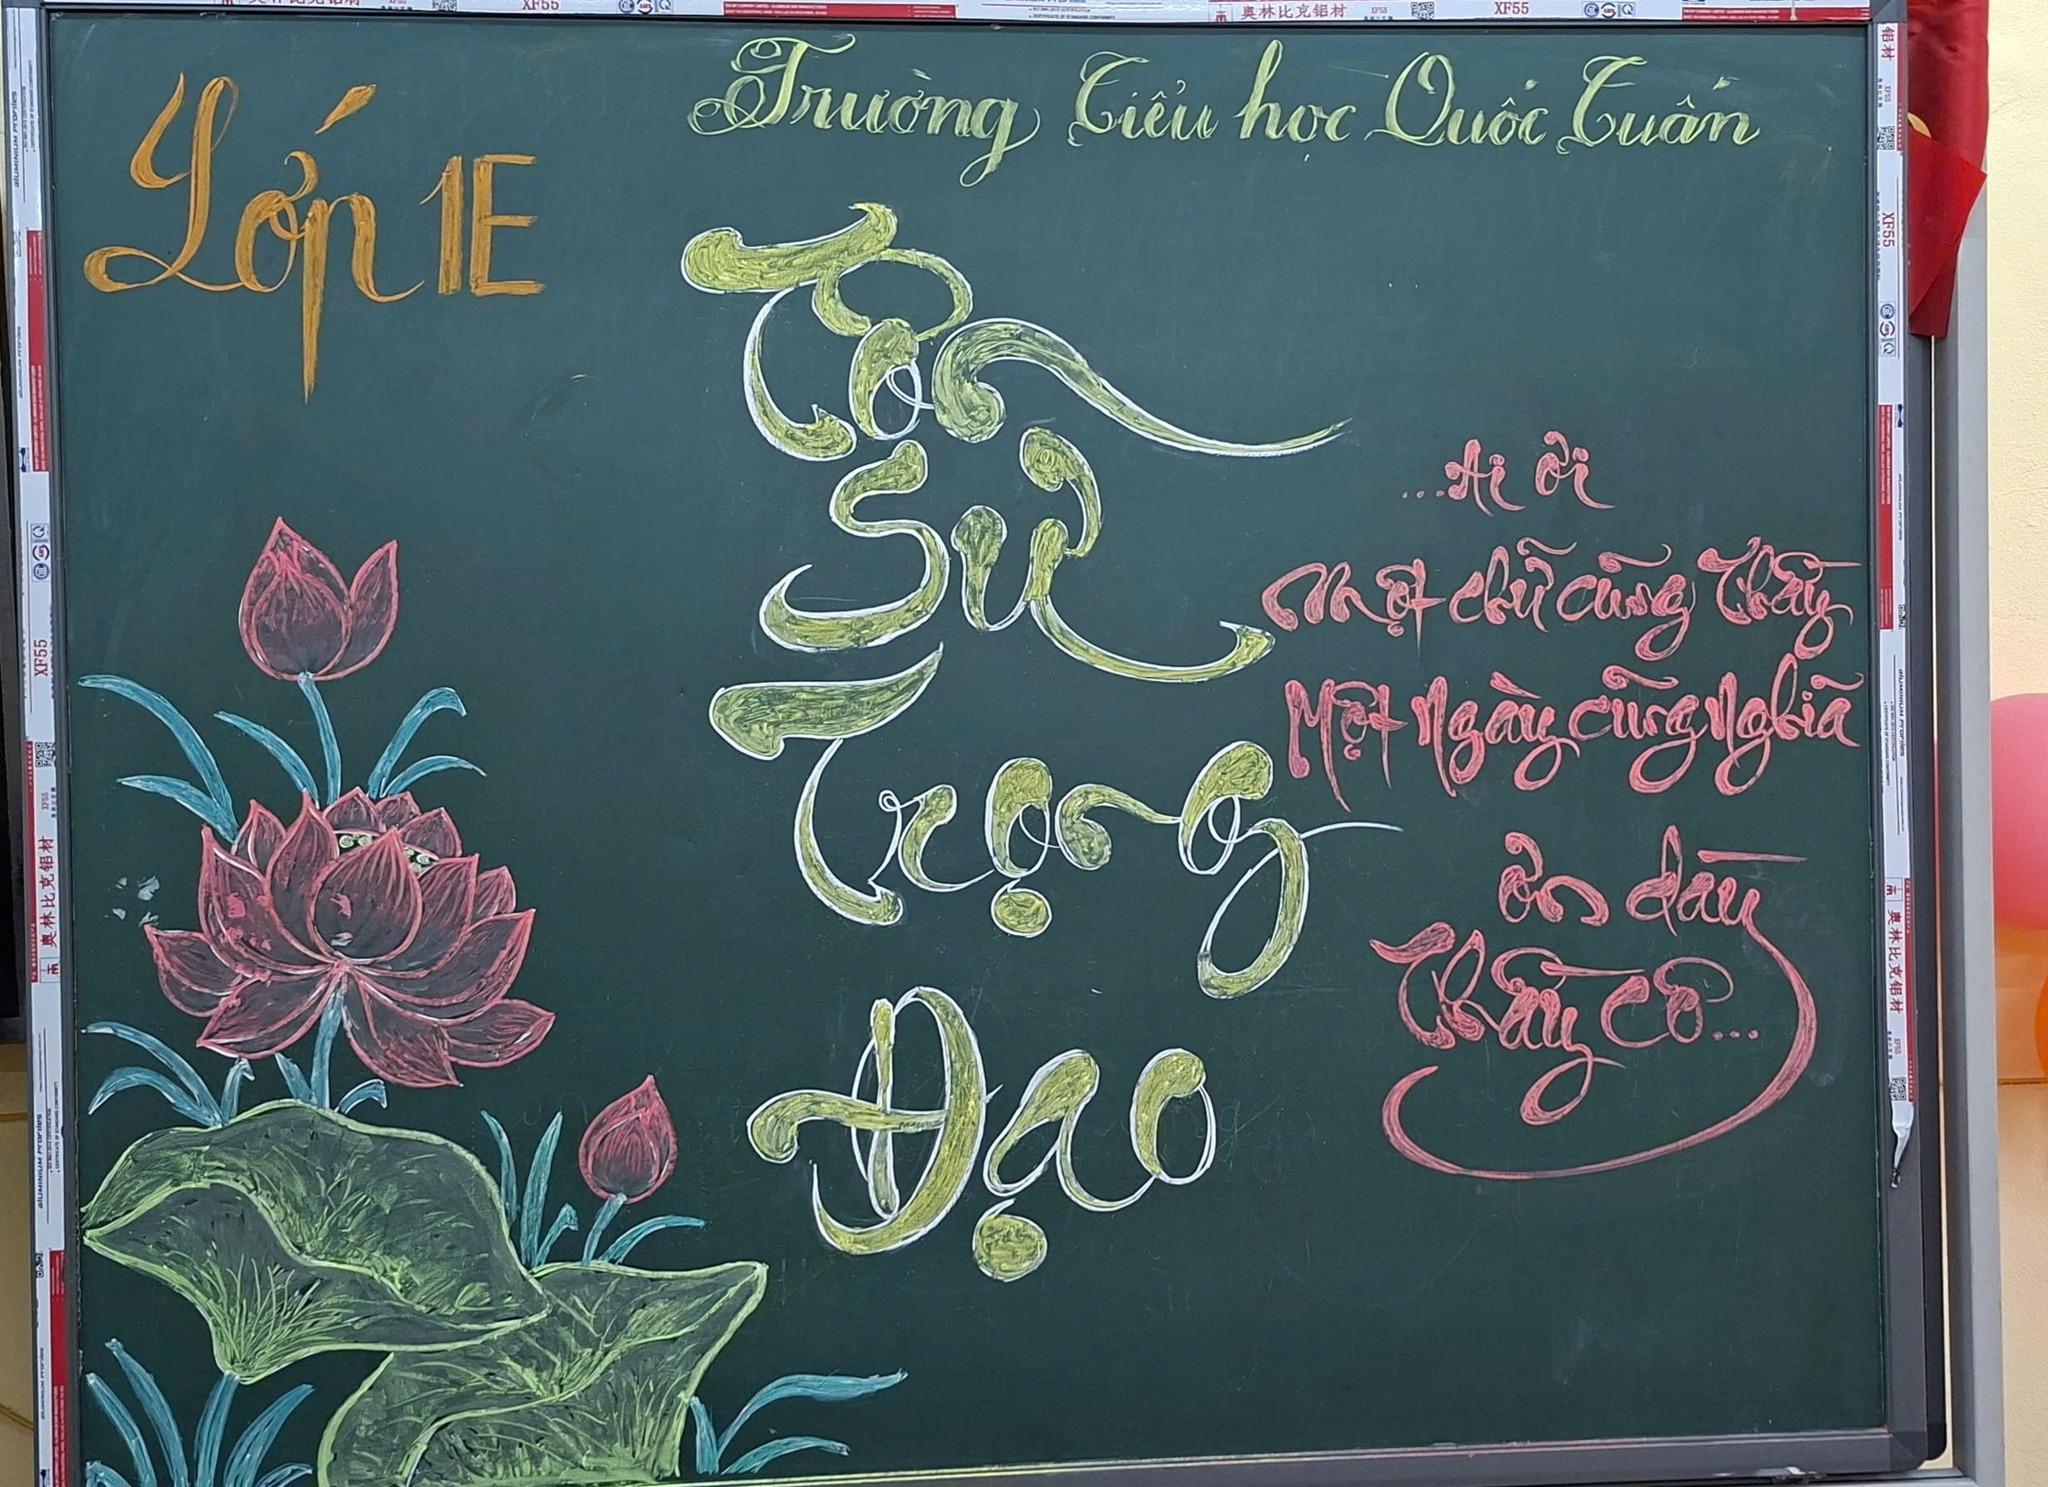 Trường Tiểu học Quốc Tuấn
Lớp 1E
Tôn
Sư
Trọng
Đạo
...Ai ơi
Một chữ cũng Thầy
Một ngày cũng nghĩa
ơn dày
Thầy Cô...
奥林比克铝材
XF55
奥林比克铝材
XF55
铝材
XF55
奥林比克铝材
XF55
奥林比克铝材